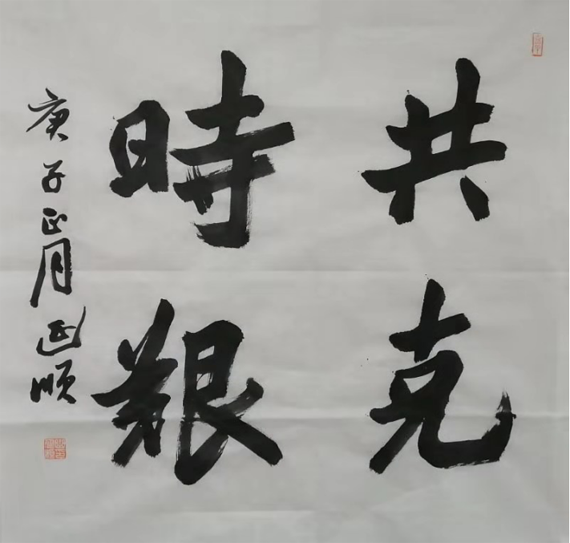 共克
時艱
庚子正月延順